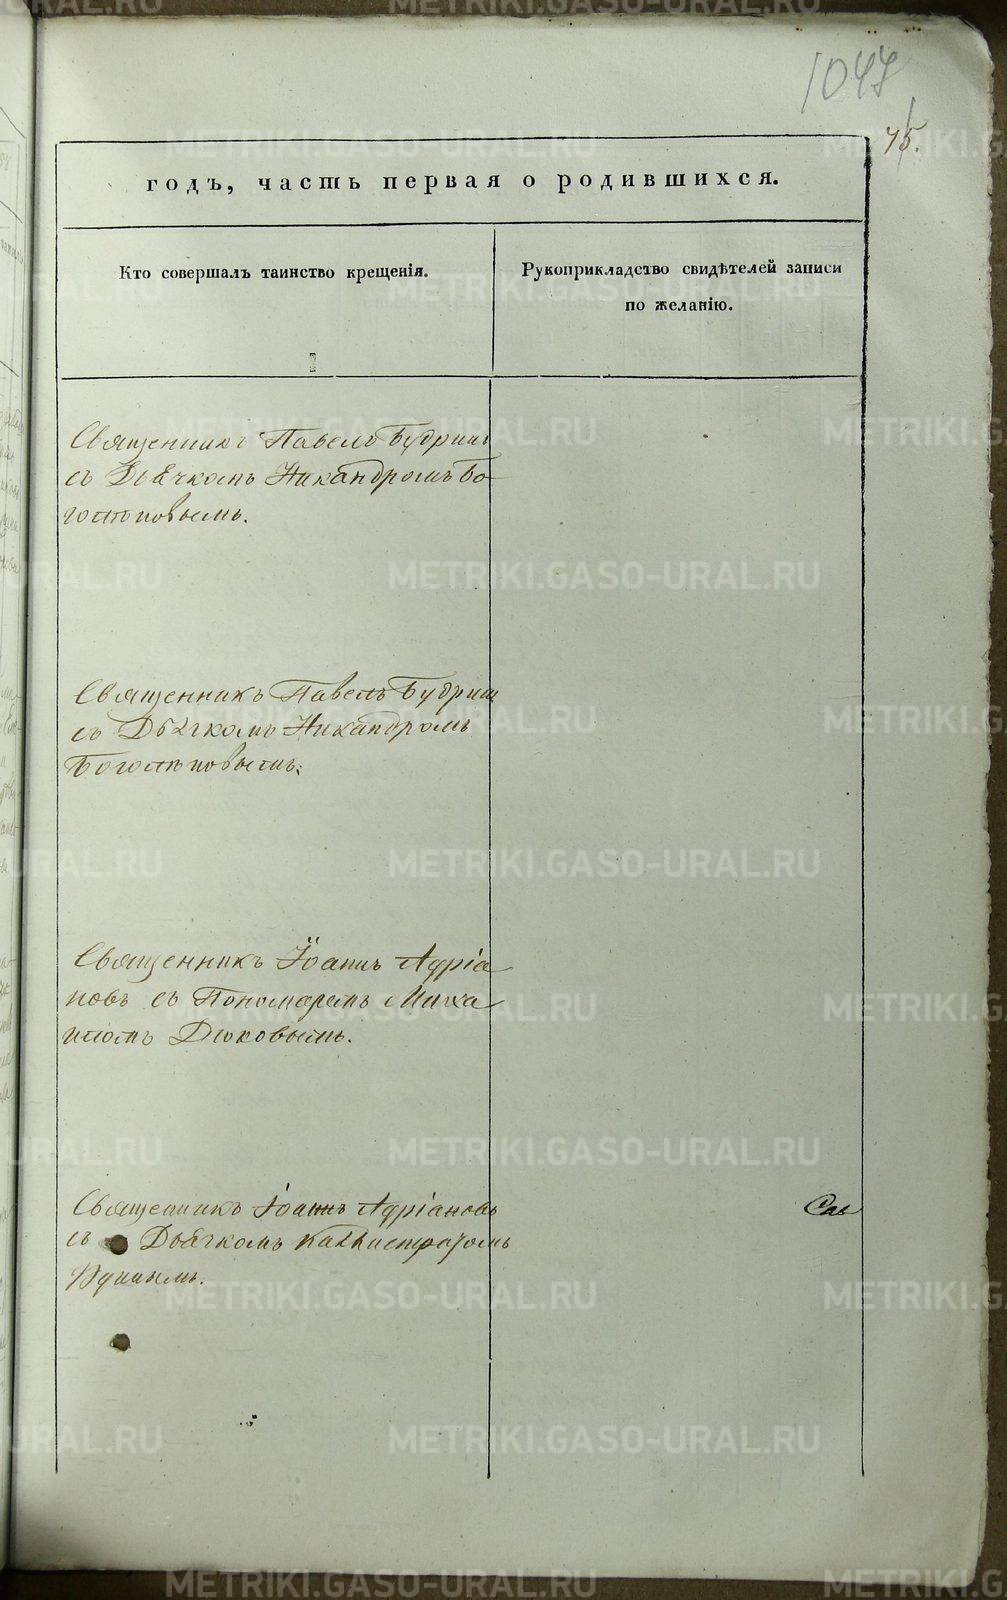 1047
75.
годъ, часть первая о родившихся.
Кто совершалъ таинство крещенія.
Рукоприкладство свидѣтелей записи
по желанію.
Священникъ Павелъ Будрин
съ Дьячкомъ Никандромъ Бо
голѣповымъ.
Священникъ Павелъ Будрин
съ Дьячкомъ Никандромъ
Боголѣповымъ.
Священникъ Іоаннъ Адріа
новъ съ Пономаремъ Миха
иломъ Дюковымъ.
Священникъ Іоаннъ Адріановъ
съ Дьячкомъ Каллистратомъ
METRIKI.GASO-URAL.RU